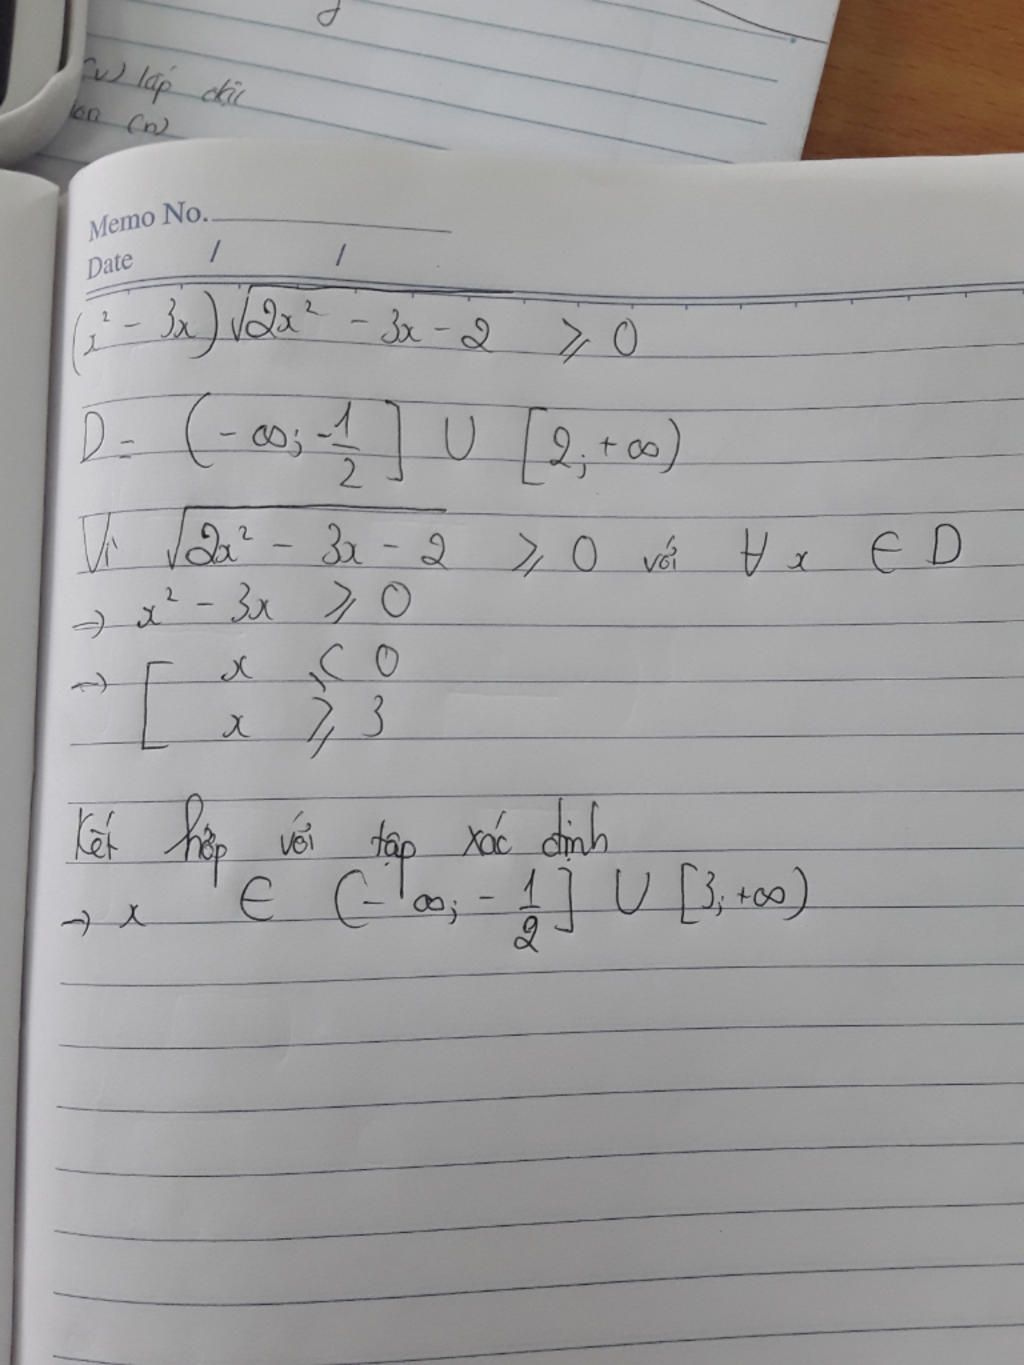 (v) lấp đầy
(n)
Memo No.
Date / /
(x² - 3x)√(2x² - 3x - 2) ⩾ 0
D = (-∞; -1/2] ∪ [2; +∞)
Vì √(2x² - 3x - 2) ⩾ 0 với ∀ x ∈ D
⇒ x² - 3x ⩾ 0
→ [ x ⩽ 0
x ⩾ 3
Kết hợp với tập xác định
→ x ∈ (-∞; -1/2] ∪ [3; +∞)